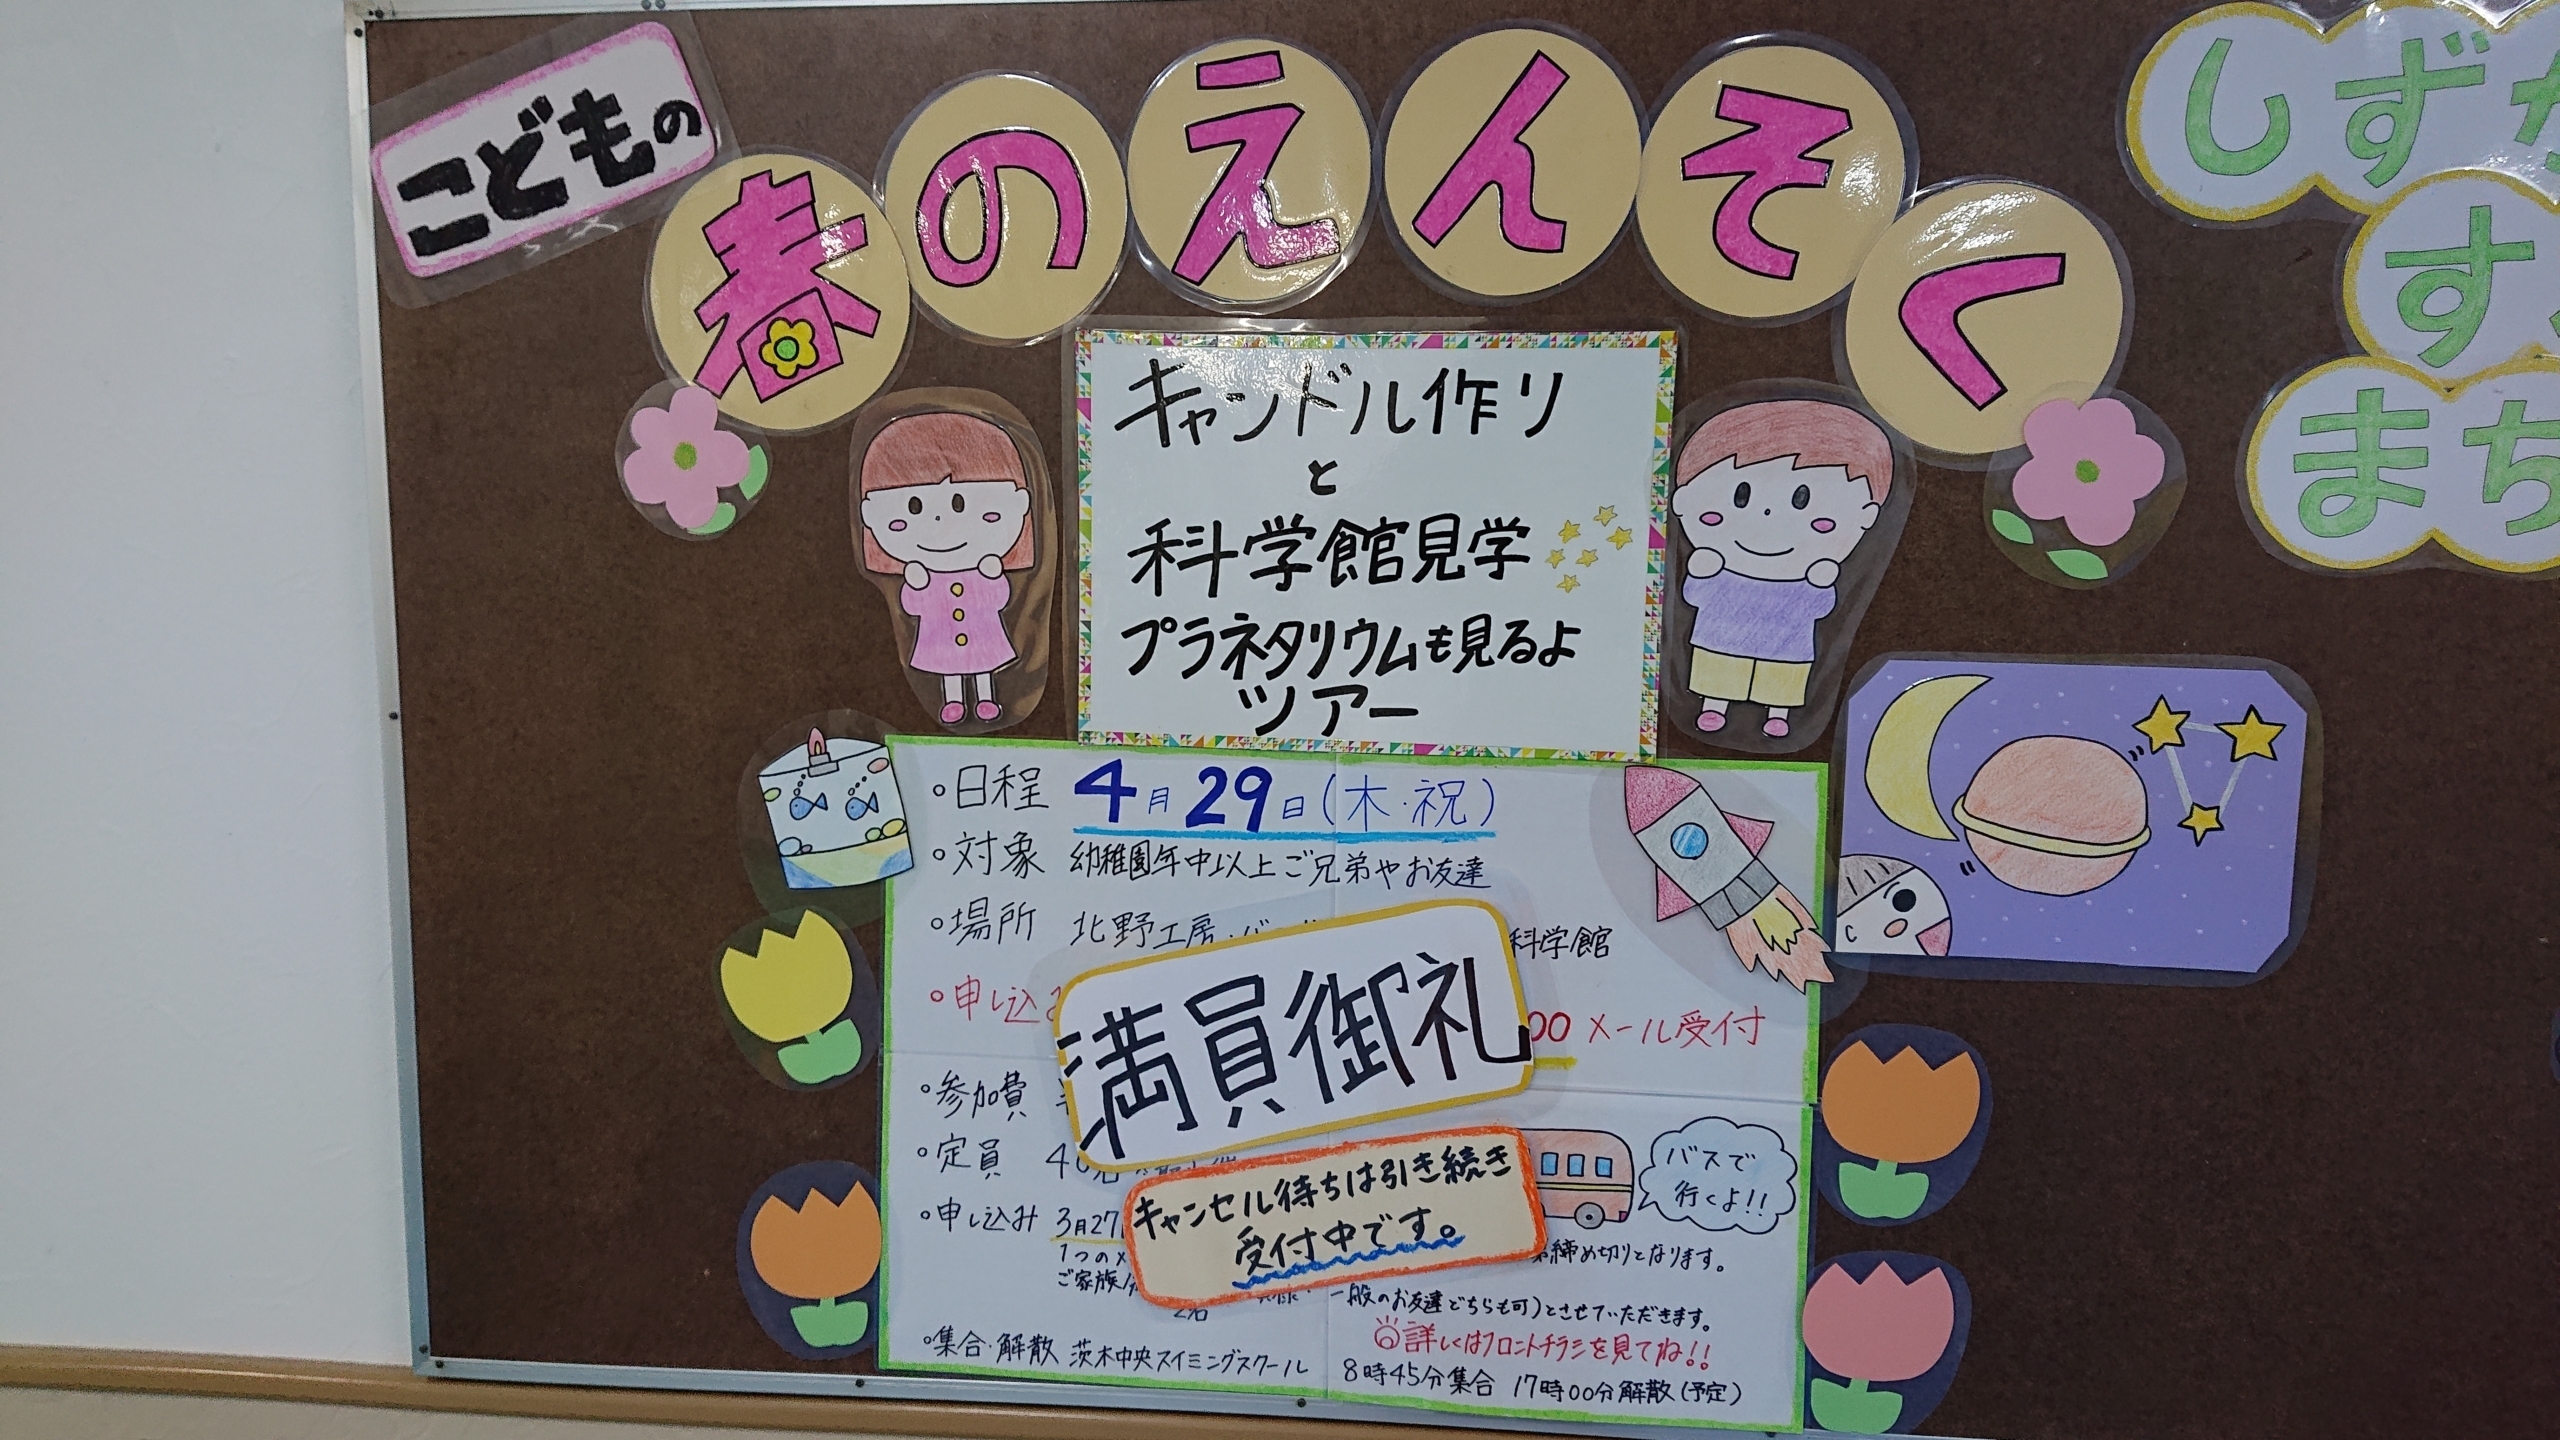 こどもの
春のえんそく
キャンドル作り
と
科学館見学
プラネタリウムも見るよ
ツアー
・日程 4月29日(木・祝)
・対象 幼稚園年中以上ご兄弟やお友達
・場所 北野工房・バ 科学館
・申し込み 00 メール受付
満員御礼
・参加費
・定員 40名
バスで
行くよ!!
キャンセル待ちは引き続き
受付中です。
・申し込み 3月27
1つの 締め切りとなります。
ご家族 一般のお友達どちらも可)とさせていただきます。
2名
詳しくはフロントチラシを見てね!!
・集合・解散 茨木中央スイミングスクール 8時45分集合 17時00分解散(予定)
しずか
す
まち